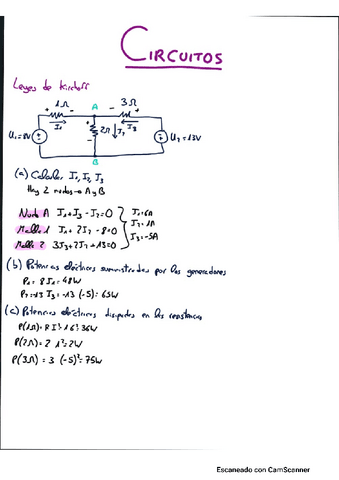 CIRCUITOS
Leyes de Kirchoff
1Ω A 3Ω
+ - - +
U₁=8V I₁ 2Ω I₂ I₃ U₂=13V
B
(a) Calcular I₁, I₂, I₃
Hay 2 nodos → A y B
Nodo A I₁+I₃-I₂=0 I₁=6A
Malla 1 I₁+2I₂-8=0 I₂=1A
Malla 2 3I₃+2I₂+13=0 I₃=-5A
(b) Potencias eléctricas suministradas por los generadores
P₁= 8I₁=48W
P₂=-13 I₃=-13(-5)=65W
(c) Potencias eléctricas disipadas en las resistencias
P(1Ω)= RI²=1·6²=36W
P(2Ω)= 2·1²=2W
P(3Ω)= 3(-5)²=75W
Escaneado con CamScanner